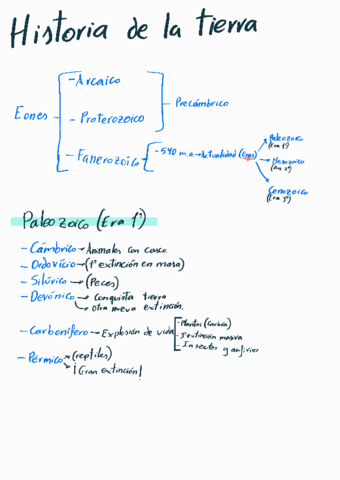 Historia de la tierra
- Arcaico
Eones
- Proterozoico
Precámbrico
- Fanerozoico
- 540 m.a → Actualidad (Eras)
Paleozoico
(Era 1ª)
Mesozoico
(Era 2ª)
Cenozoico
(Era 3ª)
Paleozoico (Era 1ª)
- Cámbrico → Animales con casco.
- Ordovícico → (1ª extinción en masa)
- Silúrico → (Peces)
- Devónico → Conquista tierra
→ Otra nueva extinción.
- Carbonífero → Explosión de vida
- Plantas (Carbón)
- 3ª extinción masiva
- Insectos y anfivios
- Pérmico → (reptiles)
→ ¡Gran extinción!